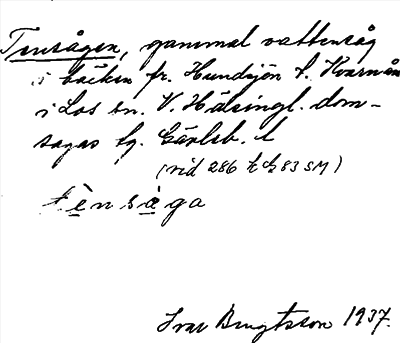 Tensågen, gammal vattensåg
i bäcken fr. Hundsjön t. Kvarnån
i Los sn. V. Hälsingl. dom-
sagas tg. Gävleb. l
(vid 286 83 SM)
tènsåga
Ivar Bengtsson 1937.